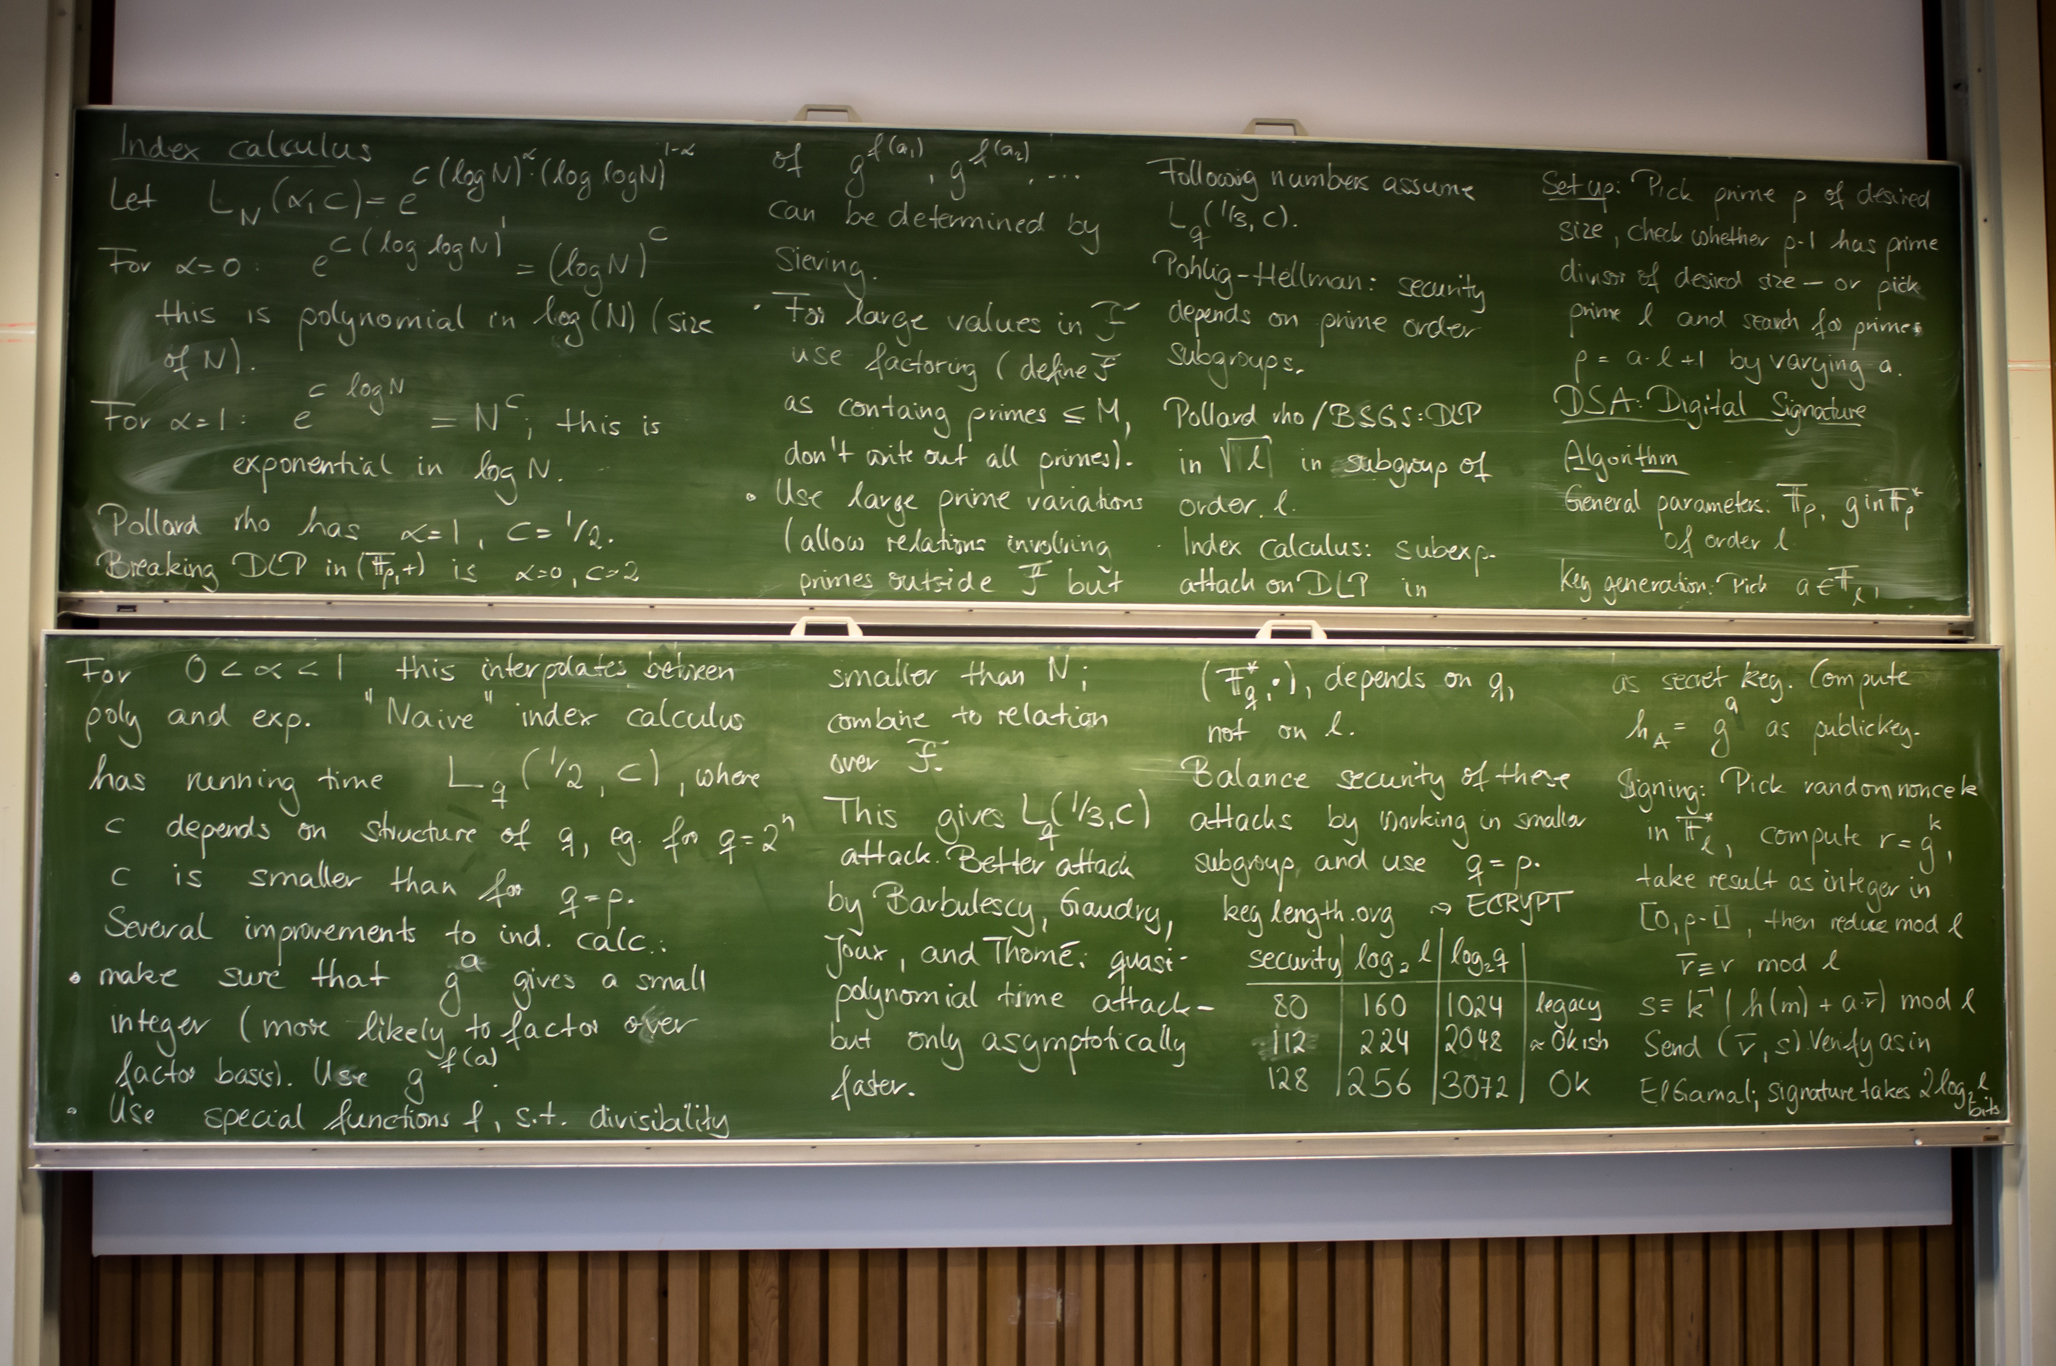 Index calculus
Let L_N(α,c) = e^{c(log N)^α·(log log N)^{1-α}}
For α=0: e^{c(log log N)^1} = (log N)^c
this is polynomial in log(N) (size
of N).
For α=1: e^{c log N} = N^c; this is
exponential in log N.
Pollard rho has α=1, c=1/2.
Breaking DLP in (𝔽_p,+) is α=0, c=2
For 0<α<1 this interpolates between
poly and exp. "Naive" index calculus
has running time L_q(1/2, c), where
c depends on structure of q, eg. for q=2^n
c is smaller than for q=p.
Several improvements to ind. calc.:
• make sure that g^a gives a small
integer (more likely to factor over
factor basis). Use g^{f(a)}.
• Use special functions f, s.t. divisibility
of g^{f(a_1)}, g^{f(a_2)}, ...
can be determined by
Sieving.
• For large values in F
use factoring (define F
as containg primes ≤ M,
don't write out all primes).
• Use large prime variations
(allow relations involving
primes outside F but
smaller than N;
combine to relation
over F.
This gives L_q(1/3,c)
attack. Better attack
by Barbulescy, Gaudry,
Joux, and Thomé: quasi-
polynomial time attack –
but only asymptotically
faster.
Following numbers assume
L_q(1/3, c).
Pohlig-Hellman: security
depends on prime order
subgroups.
Pollard rho/BSGS: DLP
in √l in subgroup of
order l.
Index calculus: subexp.
attack on DLP in
(𝔽_q^*,·), depends on q,
not on l.
Balance security of these
attacks by working in smaller
subgroup, and use q=p.
keylength.org ⇝ ECRYPT
security | log_2 l | log_2 q
80 | 160 | 1024 | legacy
112 | 224 | 2048 | ≈ Okish
128 | 256 | 3072 | Ok
Set up: Pick prime p of desired
size, check whether p-1 has prime
divisor of desired size – or pick
prime l and search for primes
p = a·l+1 by varying a.
DSA: Digital Signature
Algorithm
General parameters: 𝔽_p, g in 𝔽_p^*
of order l
Key generation: Pick a∈𝔽_l,
as secret key. Compute
h_A = g^a as public key.
Signing: Pick random nonce k
in 𝔽_l^*, compute r = g^k,
take result as integer in
[0,p-1], then reduce mod l
r̄ ≡ r mod l
s ≡ k^{-1}(h(m) + a·r̄) mod l
Send (r̄, s). Verify as in
ElGamal; signature takes 2 log_2 l
bits